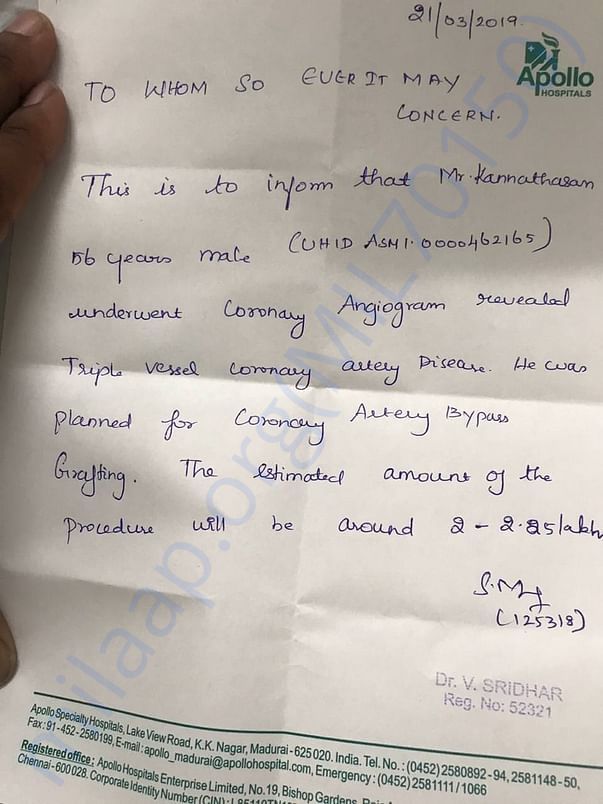 21/03/2019.
Apollo
HOSPITALS
TO WHOM SO EVER IT MAY
CONCERN.
This is to inform that Mr. Kannathasan
56 years male (UHID ASM1.0000462165)
underwent Coronary Angiogram revealed
Triple vessel coronary artery Disease. He was
planned for Coronary Artery Bypass
Grafting. The estimated amount of the
procedure will be around 2 - 2.25 lakh
(125318)
Dr. V. SRIDHAR
Reg. No: 52321
milaap.org(MIL70159)
Apollo Specialty Hospitals, Lake View Road, K.K. Nagar, Madurai - 625 020. India. Tel. No. : (0452) 2580892 - 94, 2581148 - 50,
Fax : 91 - 452 - 2580199, E-mail : apollo_madurai@apollohospital.com, Emergency : (0452) 2581111 / 1066
Registered office : Apollo Hospitals Enterprise Limited, No.19, Bishop Gardens,
Chennai - 600 028. Corporate Identity Number (CIN) :